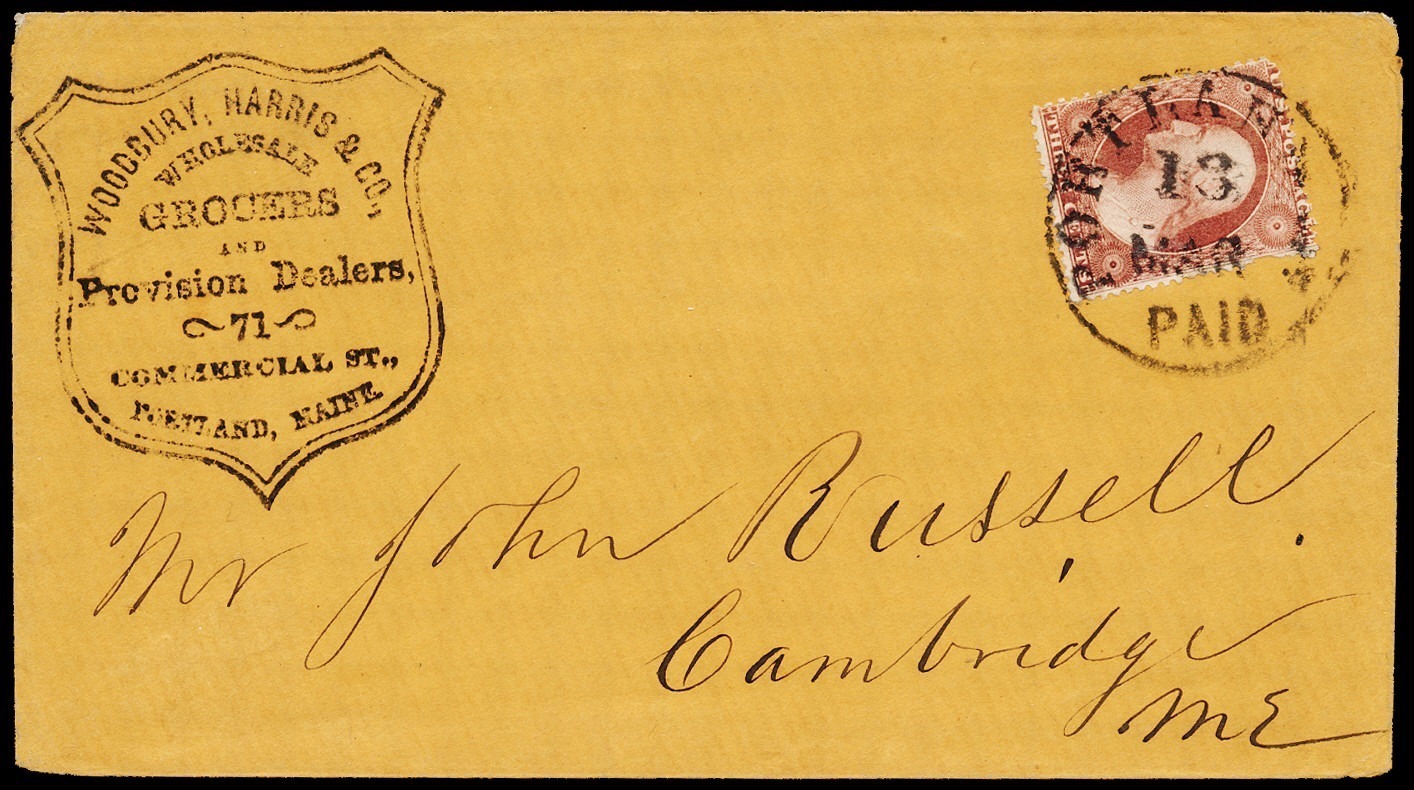 WOODBURY, HARRIS & CO.,
WHOLESALE
GROCERS
AND
Provision Dealers,
71
COMMERCIAL ST.,
PORTLAND, MAINE
PORTLAND
13
MAR
PAID
Mr John Russell.
Cambridge
ME